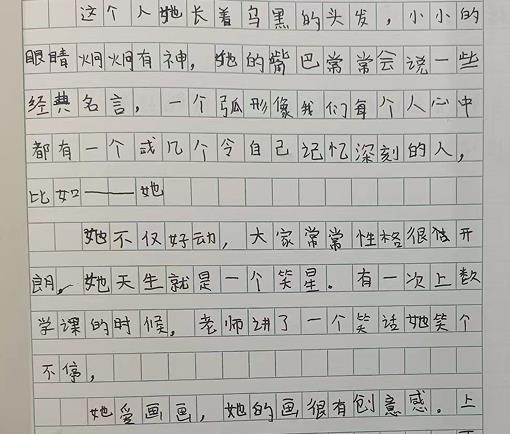 这个人她长着乌黑的头发，小小的
眼睛炯炯有神，她的嘴巴常常会说一些
经典名言，一个弧形像我们每个人心中
都有一个或几个令自己记忆深刻的人，
比如——她
她不仅好动，大家常常性格很开
朗，她天生就是一个笑星．有一次上数
学课的时候，老师讲了一个笑话她笑个
不停，
她爱画画，她的画很有创意感．上